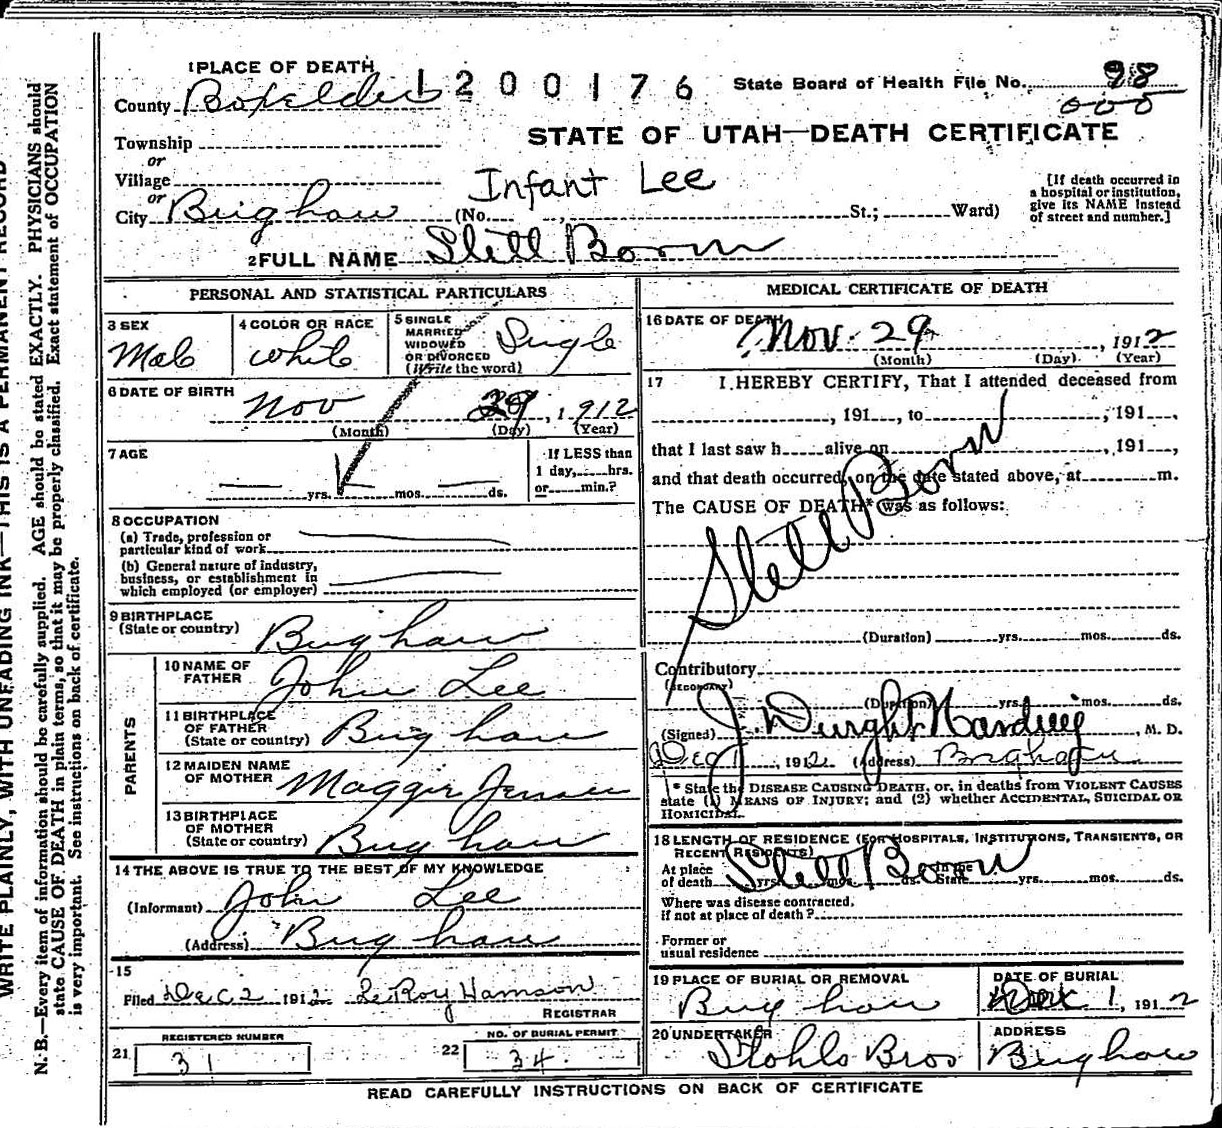 1 PLACE OF DEATH
1200176
State Board of Health File No. 98
000
County Boxelder
STATE OF UTAH—DEATH CERTIFICATE
Township
or
Village
Infant Lee
or
City Brigham (No. , St.; Ward)
[If death occurred in
a hospital or institution,
give its NAME instead
of street and number.]
2 FULL NAME Still Born
PERSONAL AND STATISTICAL PARTICULARS
3 SEX
Male
4 COLOR OR RACE
White
5 SINGLE
MARRIED
WIDOWED
OR DIVORCED
(Write the word)
Single
6 DATE OF BIRTH
Nov 29, 1912
(Month) (Day) (Year)
7 AGE
yrs. mos. ds.
If LESS than
1 day, hrs.
or min.?
8 OCCUPATION
(a) Trade, profession or
particular kind of work
(b) General nature of industry,
business, or establishment in
which employed (or employer)
9 BIRTHPLACE
(State or country)
Brigham
PARENTS
10 NAME OF
FATHER
John Lee
11 BIRTHPLACE
OF FATHER
(State or country)
Brigham
12 MAIDEN NAME
OF MOTHER
Maggie Jensen
13 BIRTHPLACE
OF MOTHER
(State or country)
Brigham
14 THE ABOVE IS TRUE TO THE BEST OF MY KNOWLEDGE
(Informant) John Lee
(Address) Brigham
15
Filed Dec 2 1912 LeRoy Hamson
REGISTRAR
REGISTERED NUMBER
21 31
NO. OF BURIAL PERMIT
22 34
MEDICAL CERTIFICATE OF DEATH
16 DATE OF DEATH
Nov. 29, 1912
(Month) (Day) (Year)
17 I HEREBY CERTIFY, That I attended deceased from
, 191 , to , 191 ,
that I last saw h alive on , 191 ,
and that death occurred, on the date stated above, at m.
The CAUSE OF DEATH* was as follows:
Still Born
(Duration) yrs. mos. ds.
Contributory
(SECONDARY)
(Duration) yrs. mos. ds.
(Signed) J. Dwight Harding, M. D.
Dec 1, 1912 (Address) Brigham
* State the DISEASE CAUSING DEATH, or, in deaths from VIOLENT CAUSES
state (1) MEANS OF INJURY; and (2) whether ACCIDENTAL, SUICIDAL OR
HOMICIDAL.
18 LENGTH OF RESIDENCE (FOR HOSPITALS, INSTITUTIONS, TRANSIENTS, OR
RECENT RESIDENTS)
Still Born
At place
of death yrs. mos. ds. In the State yrs. mos. ds.
Where was disease contracted,
if not at place of death?
Former or
usual residence
19 PLACE OF BURIAL OR REMOVAL
Brigham
DATE OF BURIAL
Dec 1, 1912
20 UNDERTAKER
Stohls Bros
ADDRESS
Brigham
READ CAREFULLY INSTRUCTIONS ON BACK OF CERTIFICATE
WRITE PLAINLY, WITH UNFADING INK—THIS IS A PERMANENT RECORD
N. B.—Every item of information should be carefully supplied. AGE should be stated EXACTLY. PHYSICIANS should
state CAUSE OF DEATH in plain terms, so that it may be properly classified. Exact statement of OCCUPATION
is very important. See instructions on back of certificate.